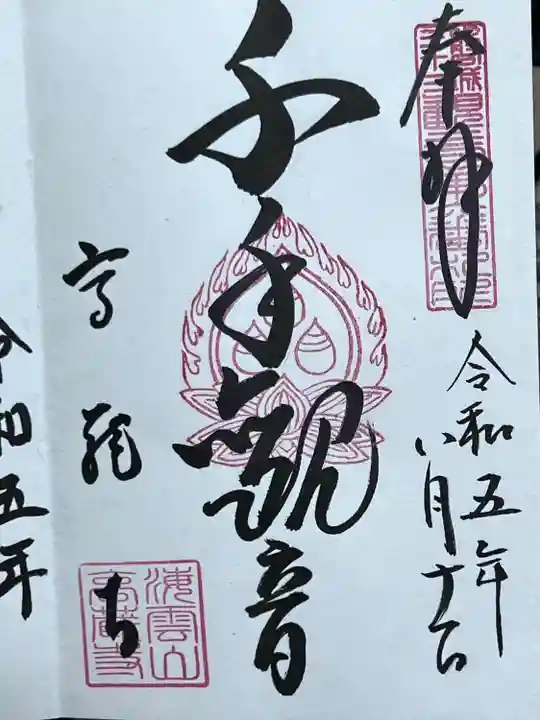 奉拝
令和五年
八月十一日
千手観音
高蔵寺
海雲山
高蔵寺
令和五年